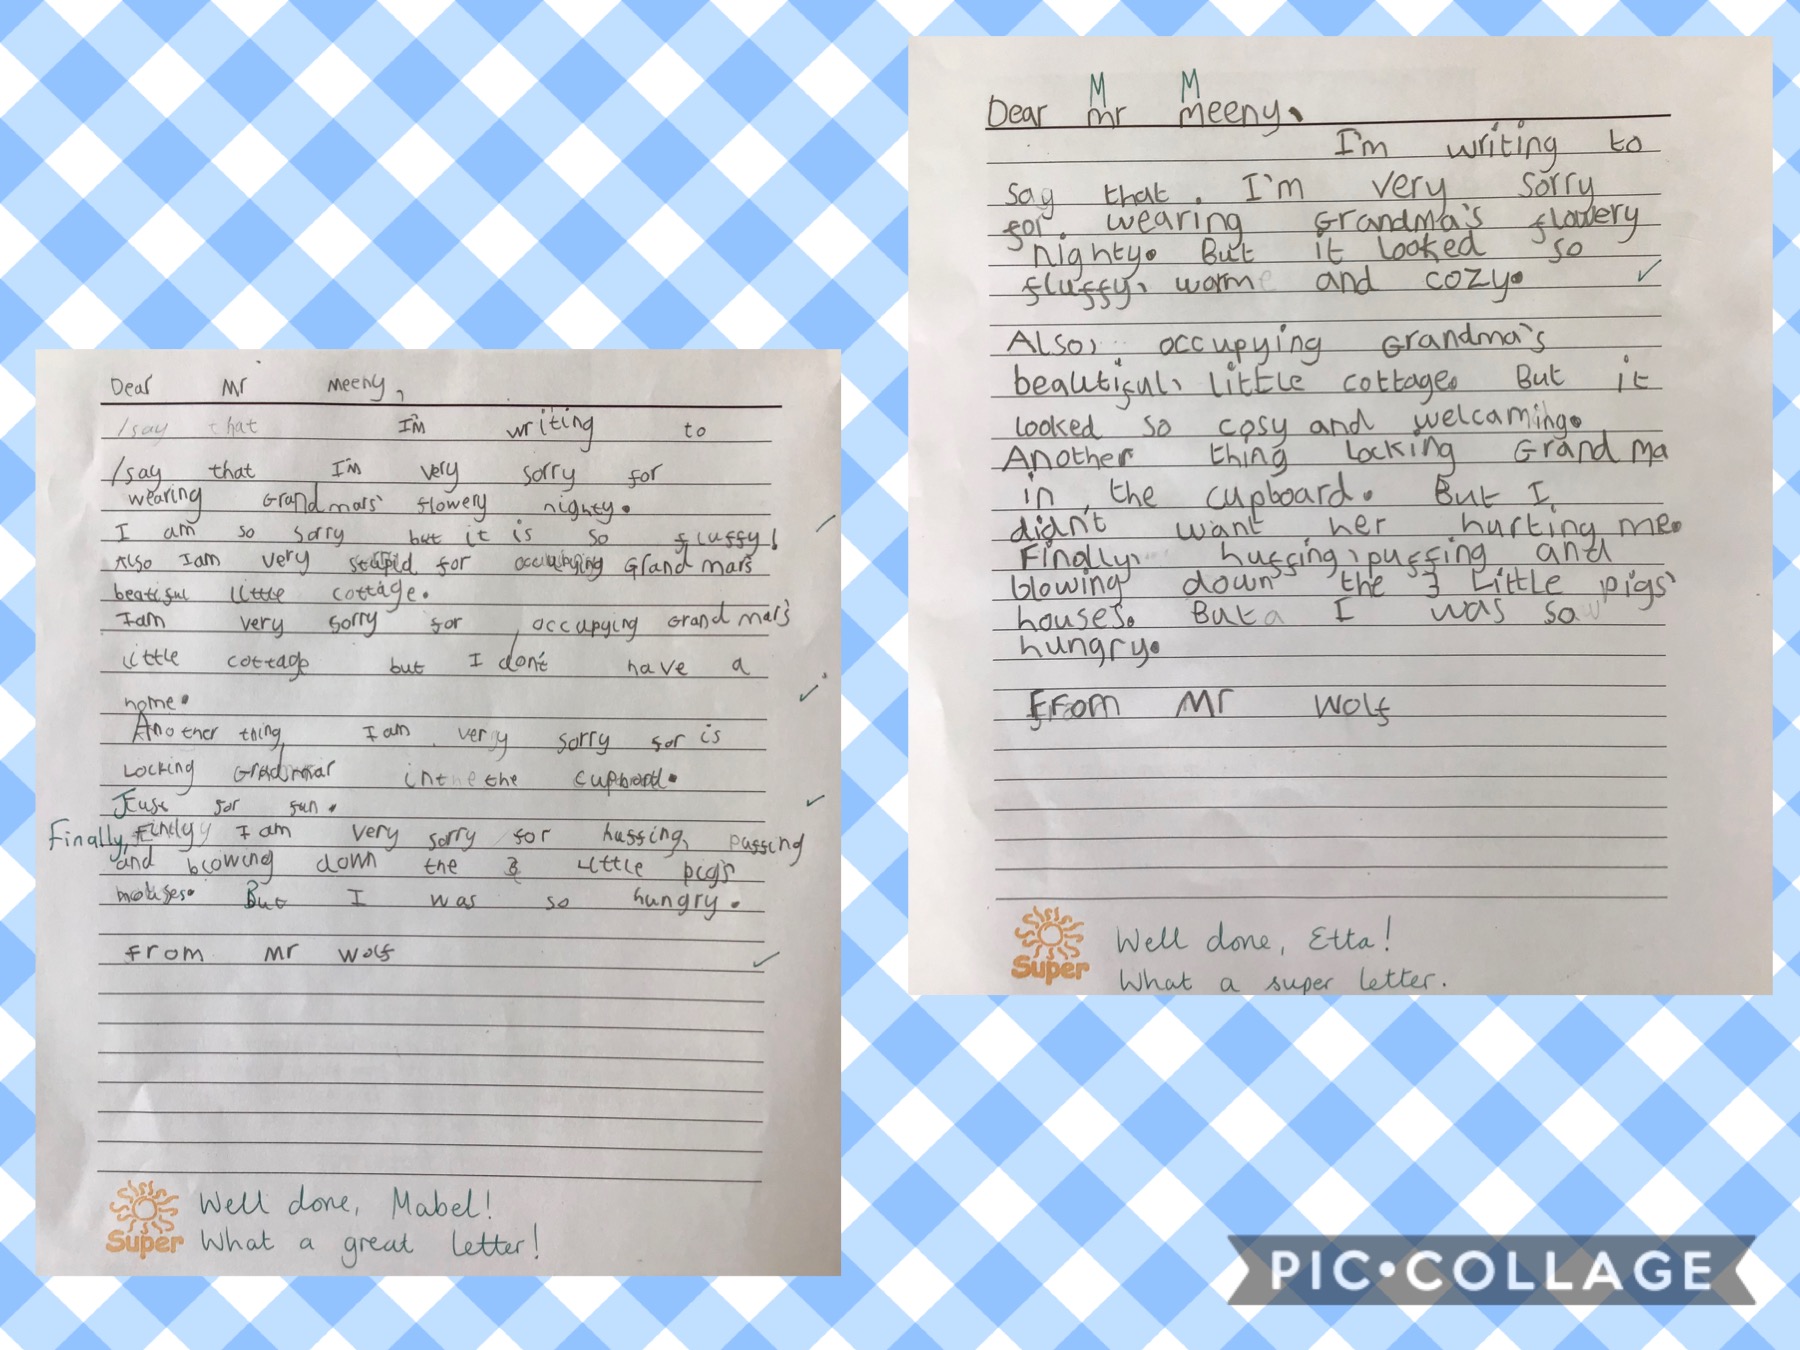 Dear Mr Meeny,
/say that I'm writing to
/say that I'm very sorry for
wearing Grandmars' flowery nighty.
I am so sorry but it is so fluffy!
Also I am very stupid for occupying Grandmars
beatiful little cottage.
I am very sorry for occupying Grandmars'
little cottage but I don't have a
home.
Another thing I am very sorry for is
Locking Grandmar in the the cupboard.
Just for fun.
Finally, Finaly I am very sorry for huffing, puffing
and blowing down the 3 little pigs
houses. But I was so hungry.
from Mr wolf
Super
Well done, Mabel!
What a great letter!
M M
Dear mr meeny,
I'm writing to
say that. I'm very sorry
for. wearing Grandma's flowery
nighty. But it looked so
fluffy, warm and cozy.
Also, occupying Grandma's
beautiful, little cottage. But it
looked so cosy and welcaming.
Another thing locking Grandma
in the cupboard. But I
didn't want her hurting me.
Finally, huffing, puffing and
blowing down the 3 little pigs'
houses. But I was so
hungry.
From Mr Wolf
Super
Well done, Etta!
What a super letter.
PIC•COLLAGE